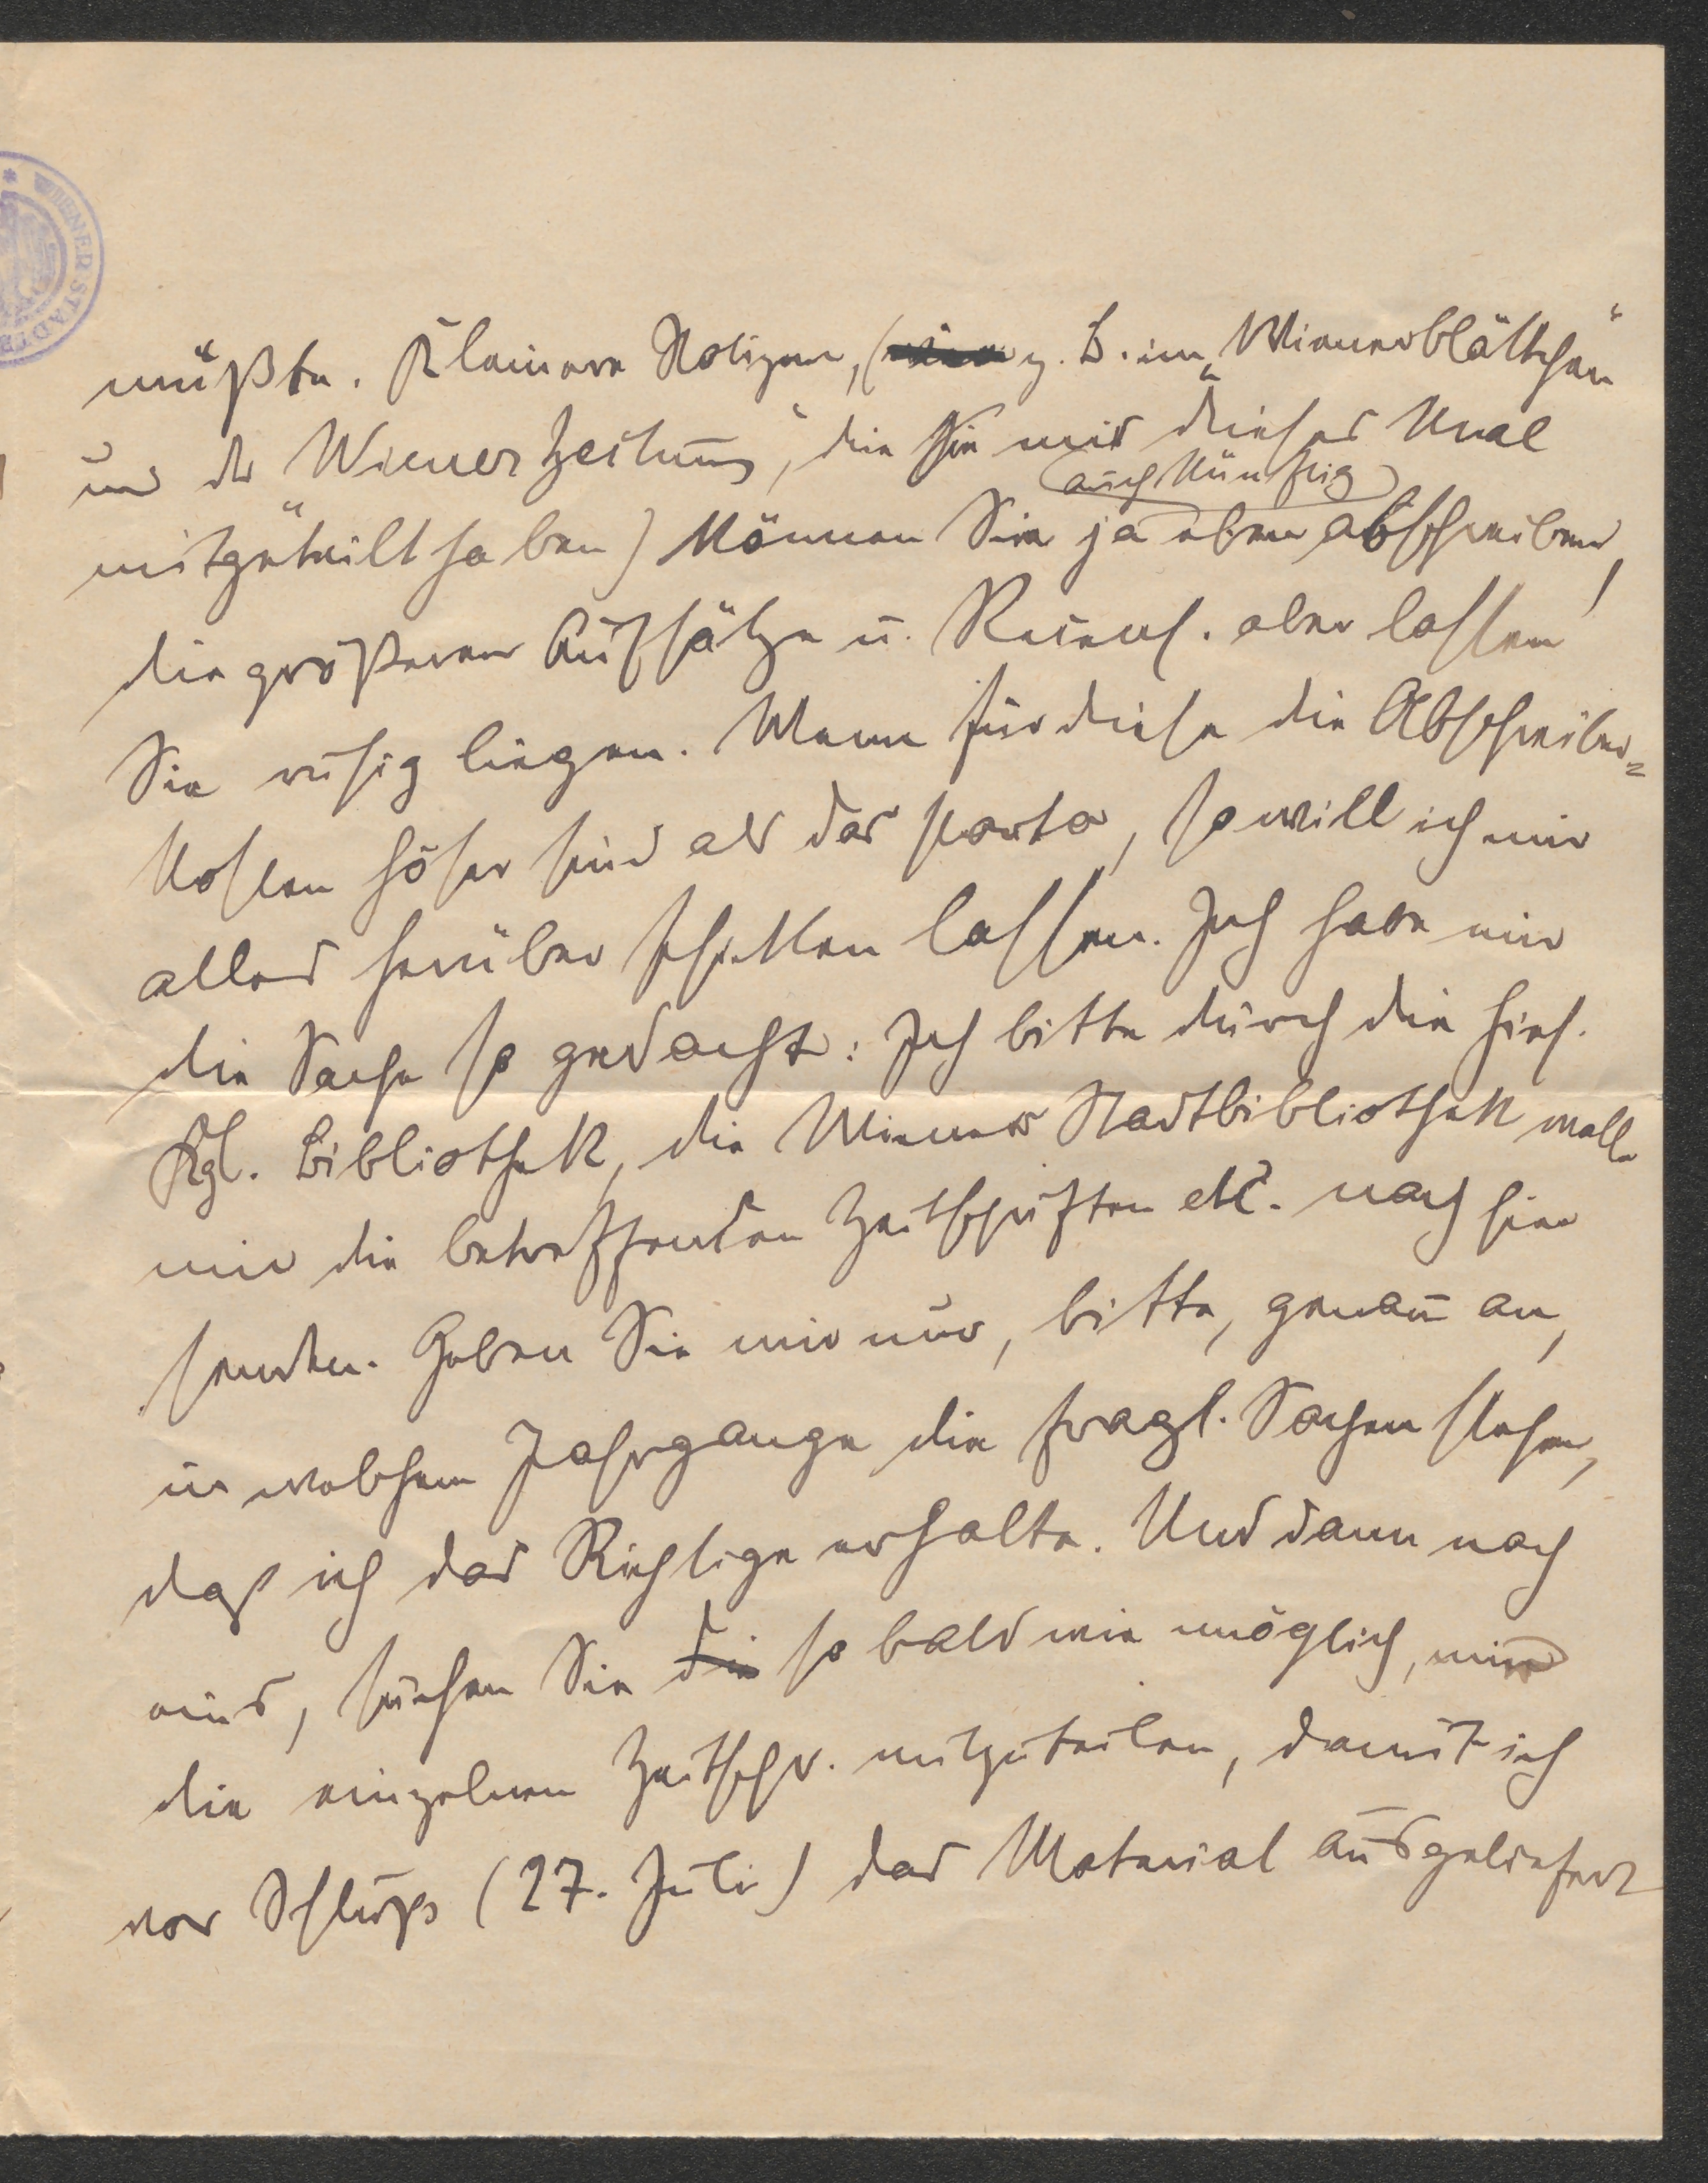 WIENER STADT
müßte. Kleinere Notizen, (z. B. im „Wienerblättchen“
und der „Wienerzeitung“, die Sie mir dieses Mal
auch künftig
mitgeteilt haben) können Sie ja eben abschreiben,
die größeren Aufsätze u. Recens. aber lassen
Sie ruhig liegen. Wenn für diese die Abschreibe=
kosten höher sind als das Porto, so will ich mir
alles herüber schicken lassen. Ich habe mir
die Sache so gedacht: Ich bitte durch die hies.
Kgl. Bibliothek, die Wiener Stadtbibliothek wolle
mir die betreffenden Zeitschriften etc. nach hier
senden. Geben Sie mir nur, bitte, genau an,
in welchem Jahrgange die fragl. Sachen stehen,
daß ich das Richtige erhalte. Und dann noch
eins, suchen Sie die so bald wie möglich, mir
die einzelnen Zeitschr. mitzuteilen, damit ich
vor Schluß (27. Juli) das Material ausgeliefert